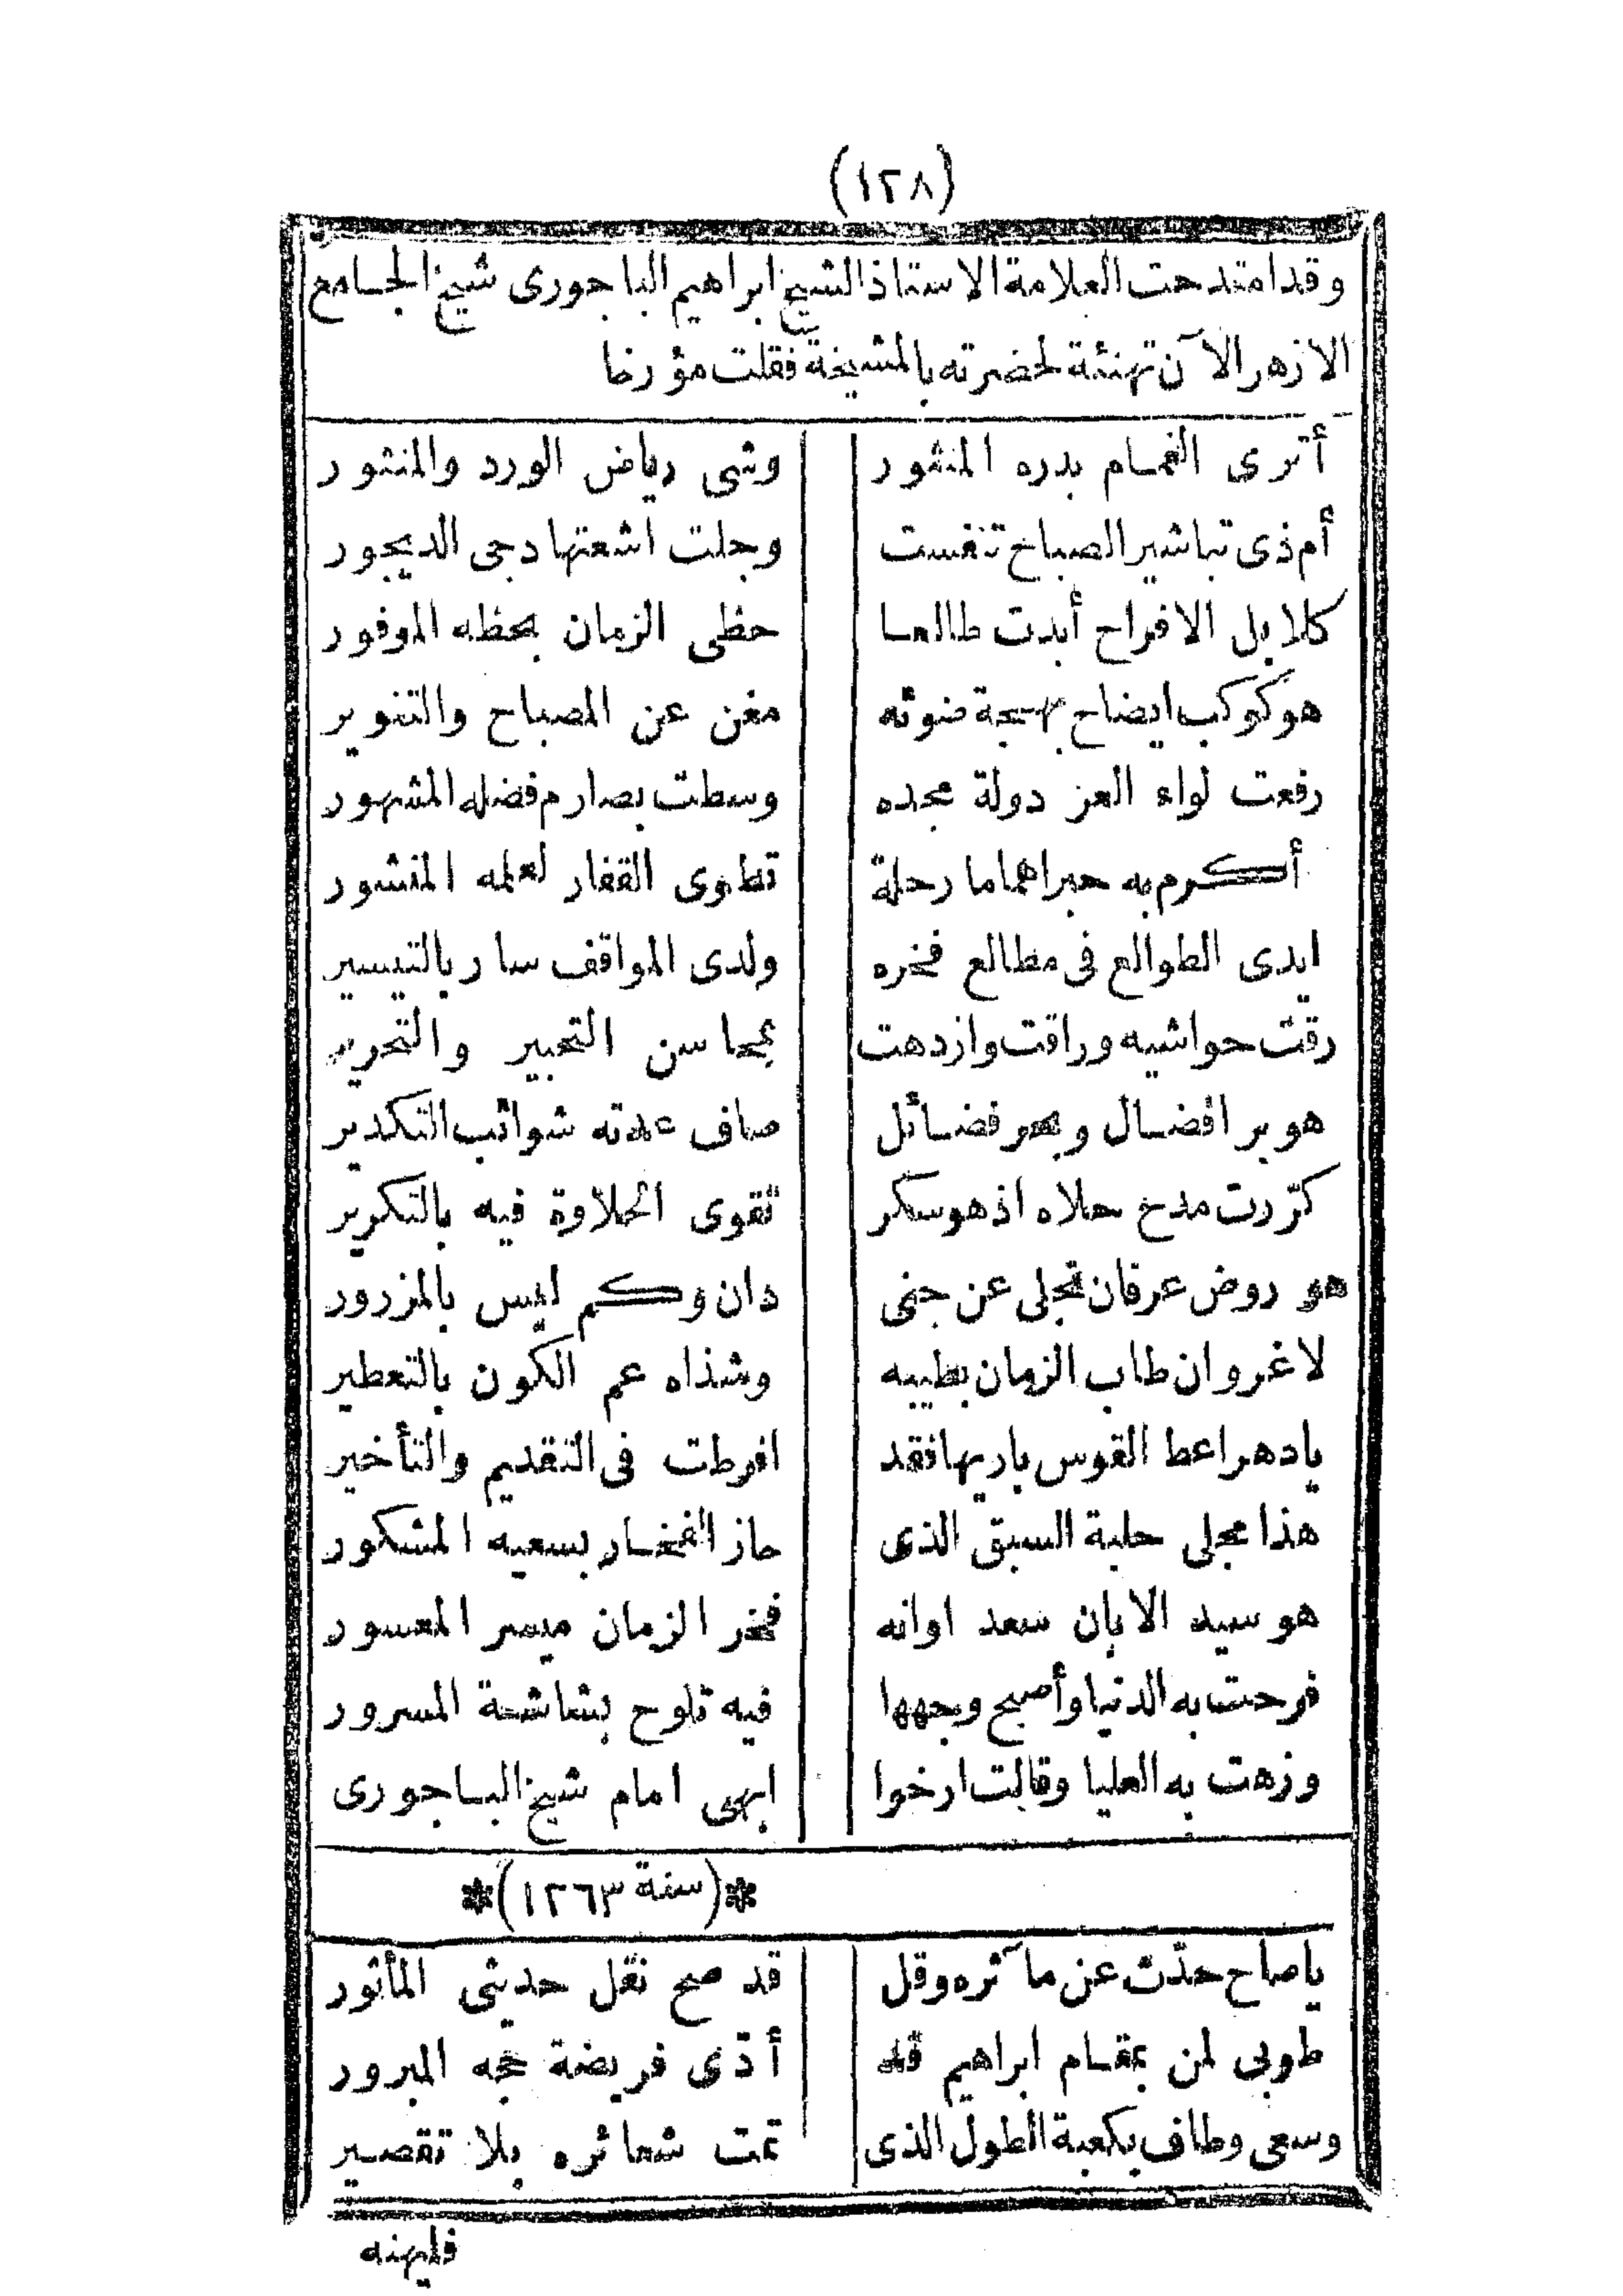 (١٢٨)
وقد امتدحت العلامة الاستاذ الشيخ ابراهيم الباجورى شيخ الجامع
الازهر الآن تهنئة لحضرته بالمشيخة فقلت مؤرخا
أترى الغمام بدره المنثور وشى رياض الورد والمنثور
أم ذى تباشير الصباح تنفست وجلت اشعتها دجى الديجور
كلا بل الافراح أبدت طالعا حظى الزمان بحظه الموفور
هو كوكب ايضاح بهجة ضوئه مغن عن المصباح والتنوير
رفعت لواء العز دولة مجده وسطت بصارم فضله المشهور
أكرم به حبرا هماما رحلة تطوى القفار لعلمه المنشور
ابدى الطوالع فى مطالع فخره ولدى المواقف سار بالتيسير
رقت حواشيه وراقت وازدهت بمحاسن التحبير والتحرير
هو بر افضال وبحر فضائل صاف عدته شوائب التكدير
كرّرت مدح حلاه اذ هو سكر تقوى الحلاوة فيه بالتكرير
هو روض عرفان تجلى عن جنى دان وكم ليس بالمزرور
لا غرو ان طاب الزمان بطيبه وشذاه عم الكون بالتعطير
يا دهر اعط القوس باريها فقد افرطت فى التقديم والتأخير
هذا مجلى حلبة السبق الذى حاز الفخار بسعيه المشكور
هو سيد الابان سعد اوانه فخر الزمان ميسر المعسور
فرحت به الدنيا وأصبح وجهها فيه تلوح بشاشة المسرور
وزهت به العليا وقالت ارخوا ابهى امام شيخ الباجورى
*(سنة ١٢٦٣)*
يا صاح حدّث عن مآثره وقل قد صح نقل حديثى المأثور
طوبى لمن بمقام ابراهيم قد أدّى فريضة حجه المبرور
وسعى وطاف بكعبة الطول الذى تمت شعائره بلا تقصير
فليهنه